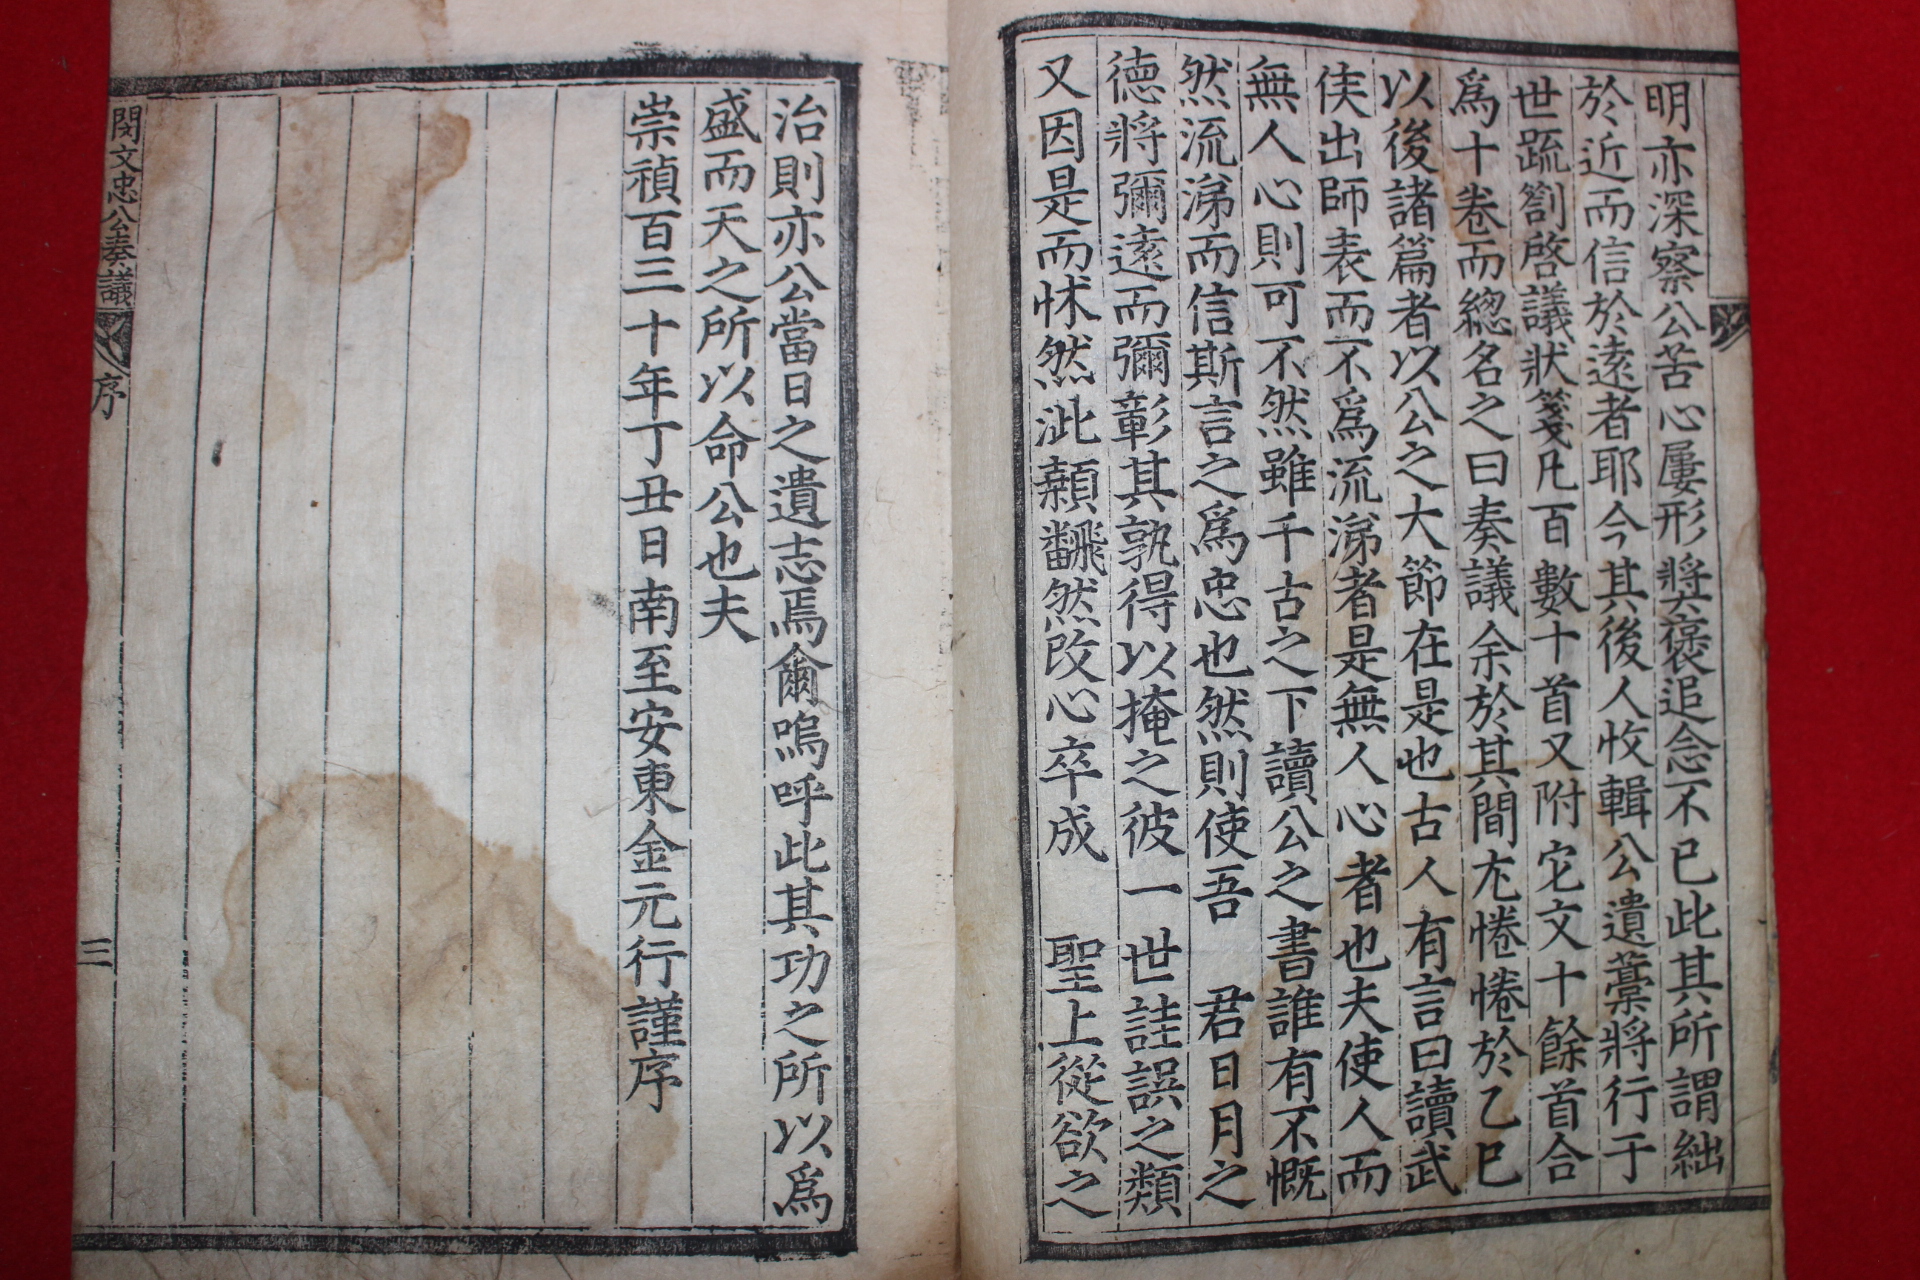 明亦深察公苦心屢形奬褒追念不已此其所謂絀
於近而信於遠者耶今其後人收輯公遺藁將行于
世疏劄啓議狀箋凡百數十首又附它文十餘首合
爲十卷而總名之曰奏議余於其間尤惓惓於乙巳
以後諸篇者以公之大節在是也古人有言曰讀武
侯出師表而不爲流涕者是無人心者也夫使人而
無人心則可不然雖千古之下讀公之書誰有不慨
然流涕而信斯言之爲忠也然則使吾 君日月之
德將彌遠而彌彰其孰得以掩之彼一世詿誤之類
又因是而怵然泚顙飜然改心卒成 聖上從欲之
治則亦公當日之遺志焉爾嗚呼此其功之所以爲
盛而天之所以命公也夫
崇禎百三十年丁丑日南至安東金元行謹序
閔文忠公奏議 序 三